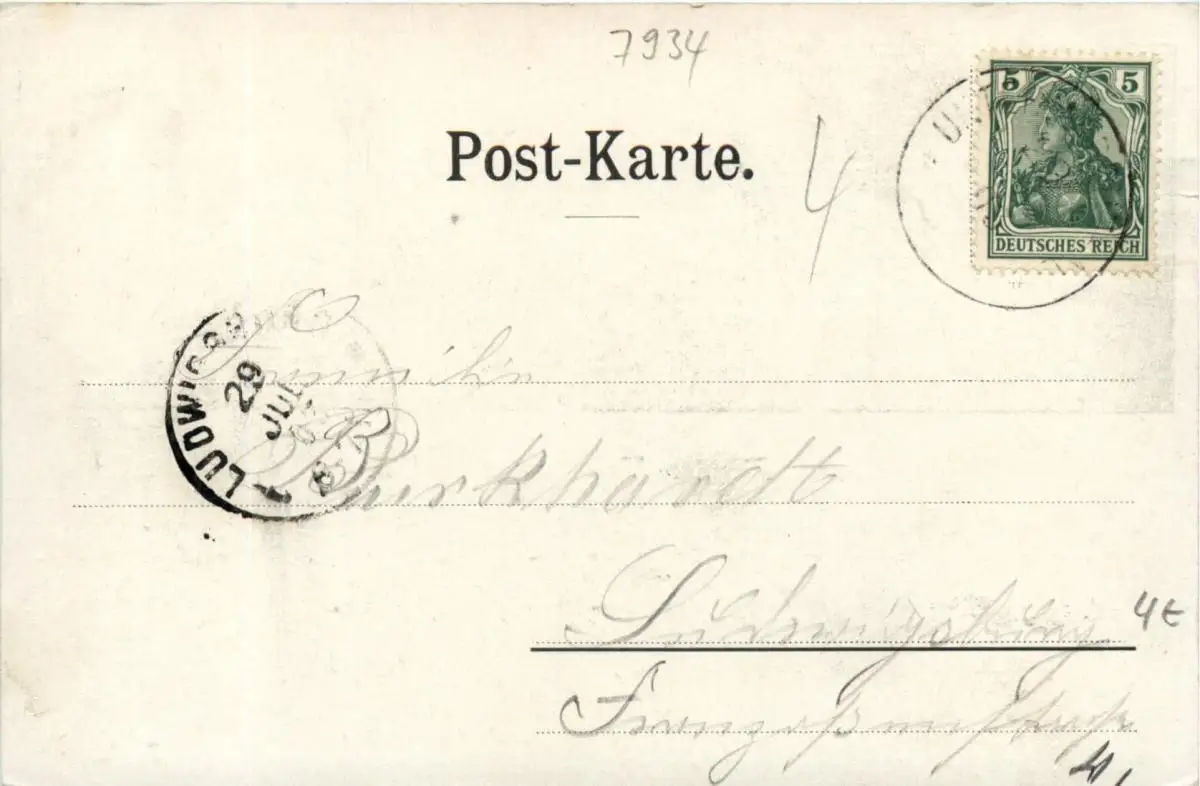 7934
Post-Karte.
4
5 5
DEUTSCHES REICH
U
LUDWIGSB
29
JUL
Familie
Burkhardt
Ludwigsburg
4€